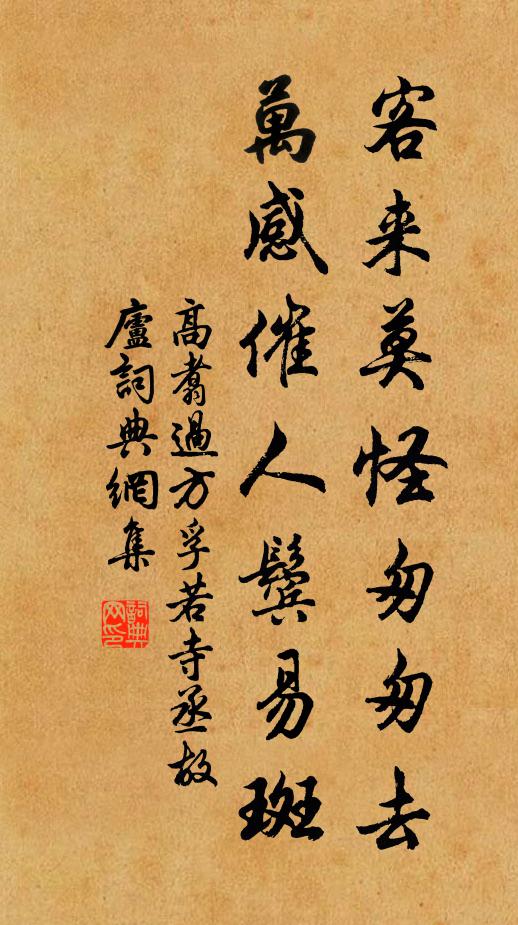 客来莫怪匆匆去
萬感催人鬓易斑
高翥過方孚若寺丞故
廬詞典網集
詞典
网印